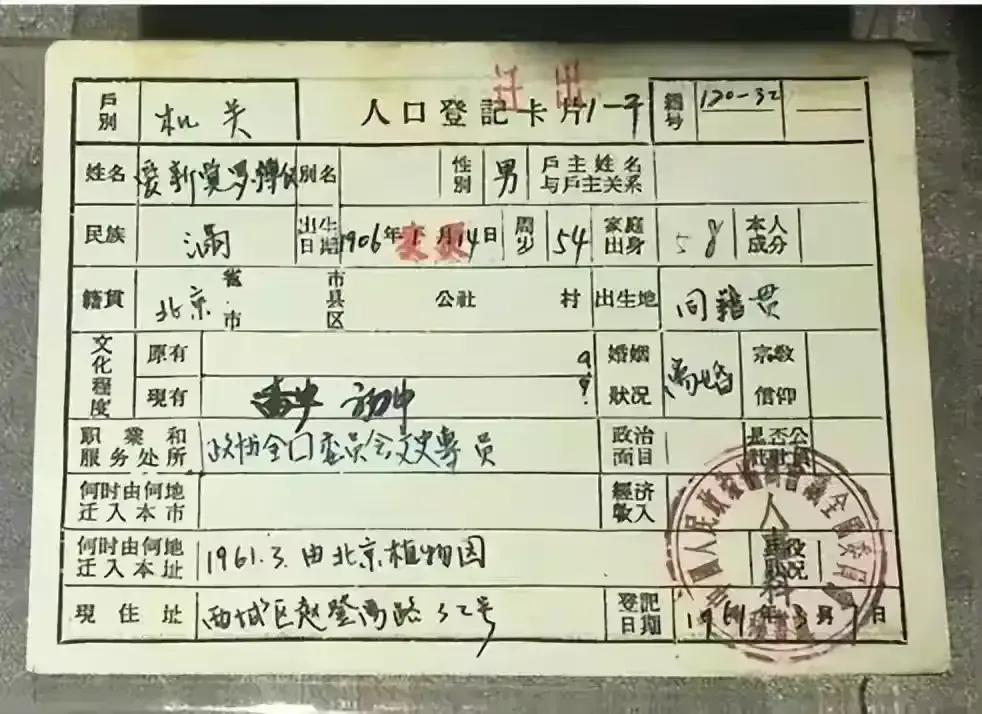 迁出
戶別 机关 人口登記卡片 1-干 編号 120-32
姓名 爱新觉罗溥仪 別名 性別 男 戶主姓名与戶主关系
民族 满 出生日期 1906年 月14日 变更 周岁 54 家庭出身 58 本人成分
籍貫 北京 省市 市县区 公社 村 出生地 同籍贯
文化程度 原有 婚姻狀况 离婚 宗敎信仰
現有 初中
职業和服务处所 政协全囗委员会文史專员 政治面目 是否公社社員
何时由何地迁入本市 經济收入
何时由何地迁入本址 1961.3.由北京植物园 兵役狀况
現住址 西城区赵登禹路32号 登記日期 1961年3月 日
中國人民政治協商會議全國委員會
人事科